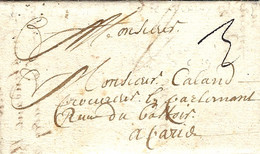 Monsieur
Monsieur Caland
procureur le parlemant
Rue du battoir
a Paris